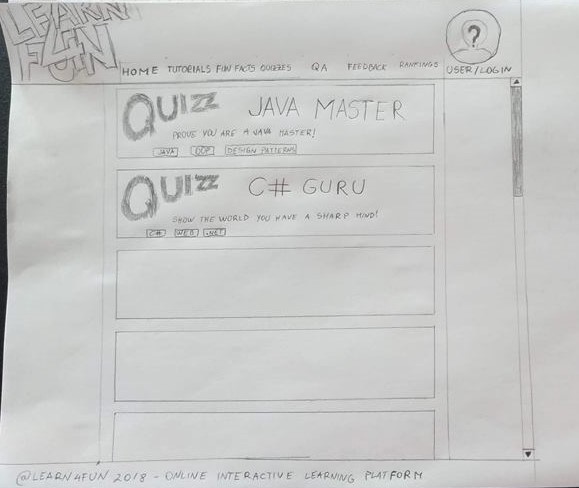 LEARN
4
FUN
?
HOME TUTORIALS FUN FACTS QUIZZES QA FEEDBACK RANKINGS USER/LOGIN
QUIZZ JAVA MASTER
PROVE YOU ARE A JAVA MASTER!
JAVA OOP DESIGN PATTERNS
QUIZZ C# GURU
SHOW THE WORLD YOU HAVE A SHARP MIND!
C# WEB .NET
@LEARN4FUN 2018 - ONLINE INTERACTIVE LEARNING PLATFORM